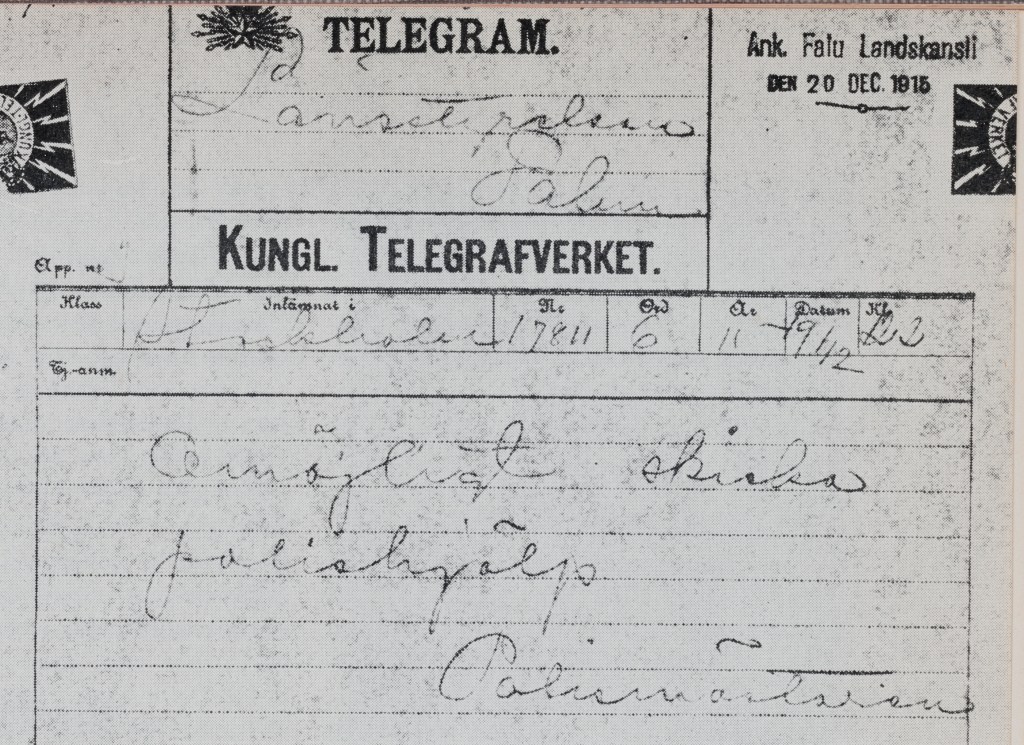 TELEGRAM.
Ank. Falu Landskansli
DEN 20 DEC. 1915
Länsstyrelsen
Falun
KUNGL. TELEGRAFVERKET.
App. nr
Klass Inlämnat i Nr Ord Är Datum Kl.
Stockholm 17811 6 11 19/12
Tj.-anm.
Omöjligt skicka
polishjälp
Polismästaren